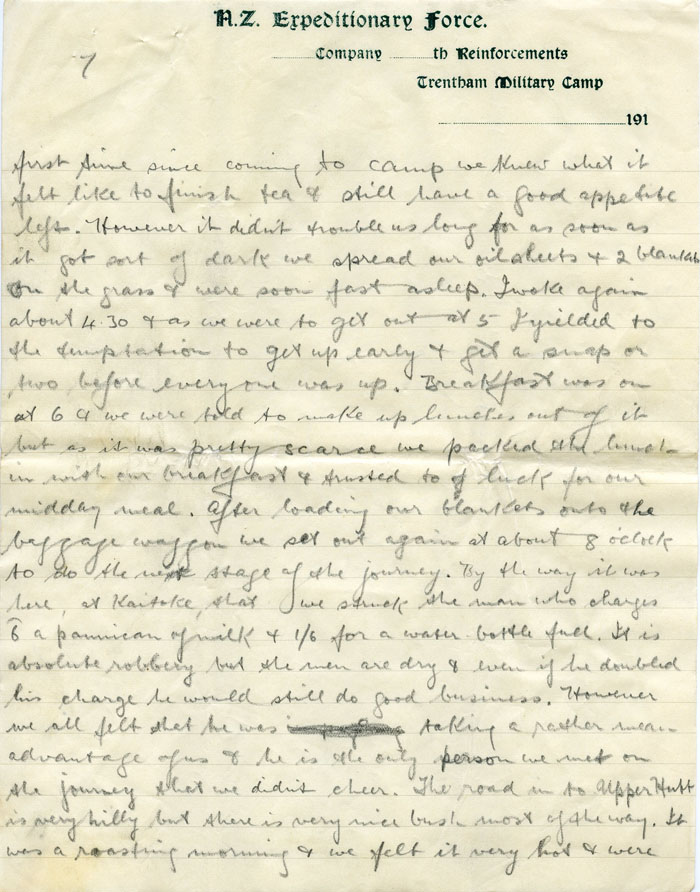 N.Z. Expeditionary Force.
7
Company th Reinforcements
Trentham Military Camp
191
first time since coming to camp we knew what it
felt like to finish tea & still have a good appetite
left. However it didn't trouble us long for as soon as
it got sort of dark we spread our oilsheets & 2 blankets
on the grass & were soon fast asleep. I woke again
about 4.30 & as we were to get out at 5 I yielded to
the temptation to get up early & get a snap or
two before everyone was up. Breakfast was on
at 6 & we were told to make up lunches out of it
but as it was pretty scarce we packed the lunch
in with our breakfast & trusted to luck for our
midday meal. After loading our blankets onto the
baggage waggon we set out again at about 8 o'clock
to do the next stage of the journey. By the way it was
here, at Kaitoke, that we struck the man who charges
6 a pannican of milk & 1/6 for a water bottle full. It is
absolute robbery but the men are dry & even if he doubled
his charge he would still do good business. However
we all felt that he was taking a rather mean
advantage of us & he is the only person we met on
the journey that we didn't cheer. The road in to Upper Hutt
is very hilly but there is very nice bush most of the way. It
was a roasting morning & we felt it very hot & were